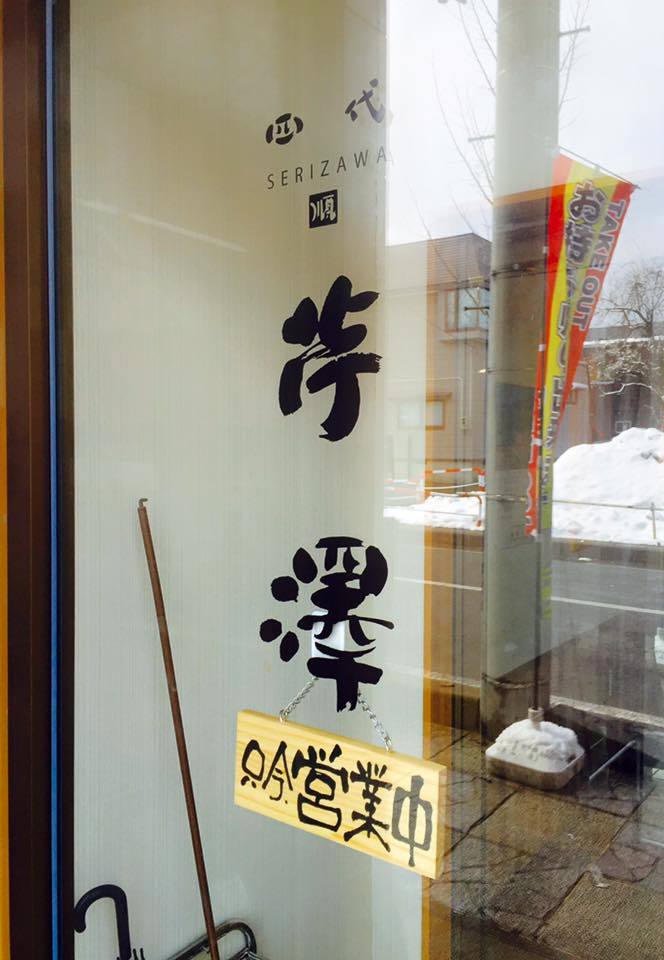 四代
SERIZAWA
順
芹澤
只今営業中
TAKE OUT